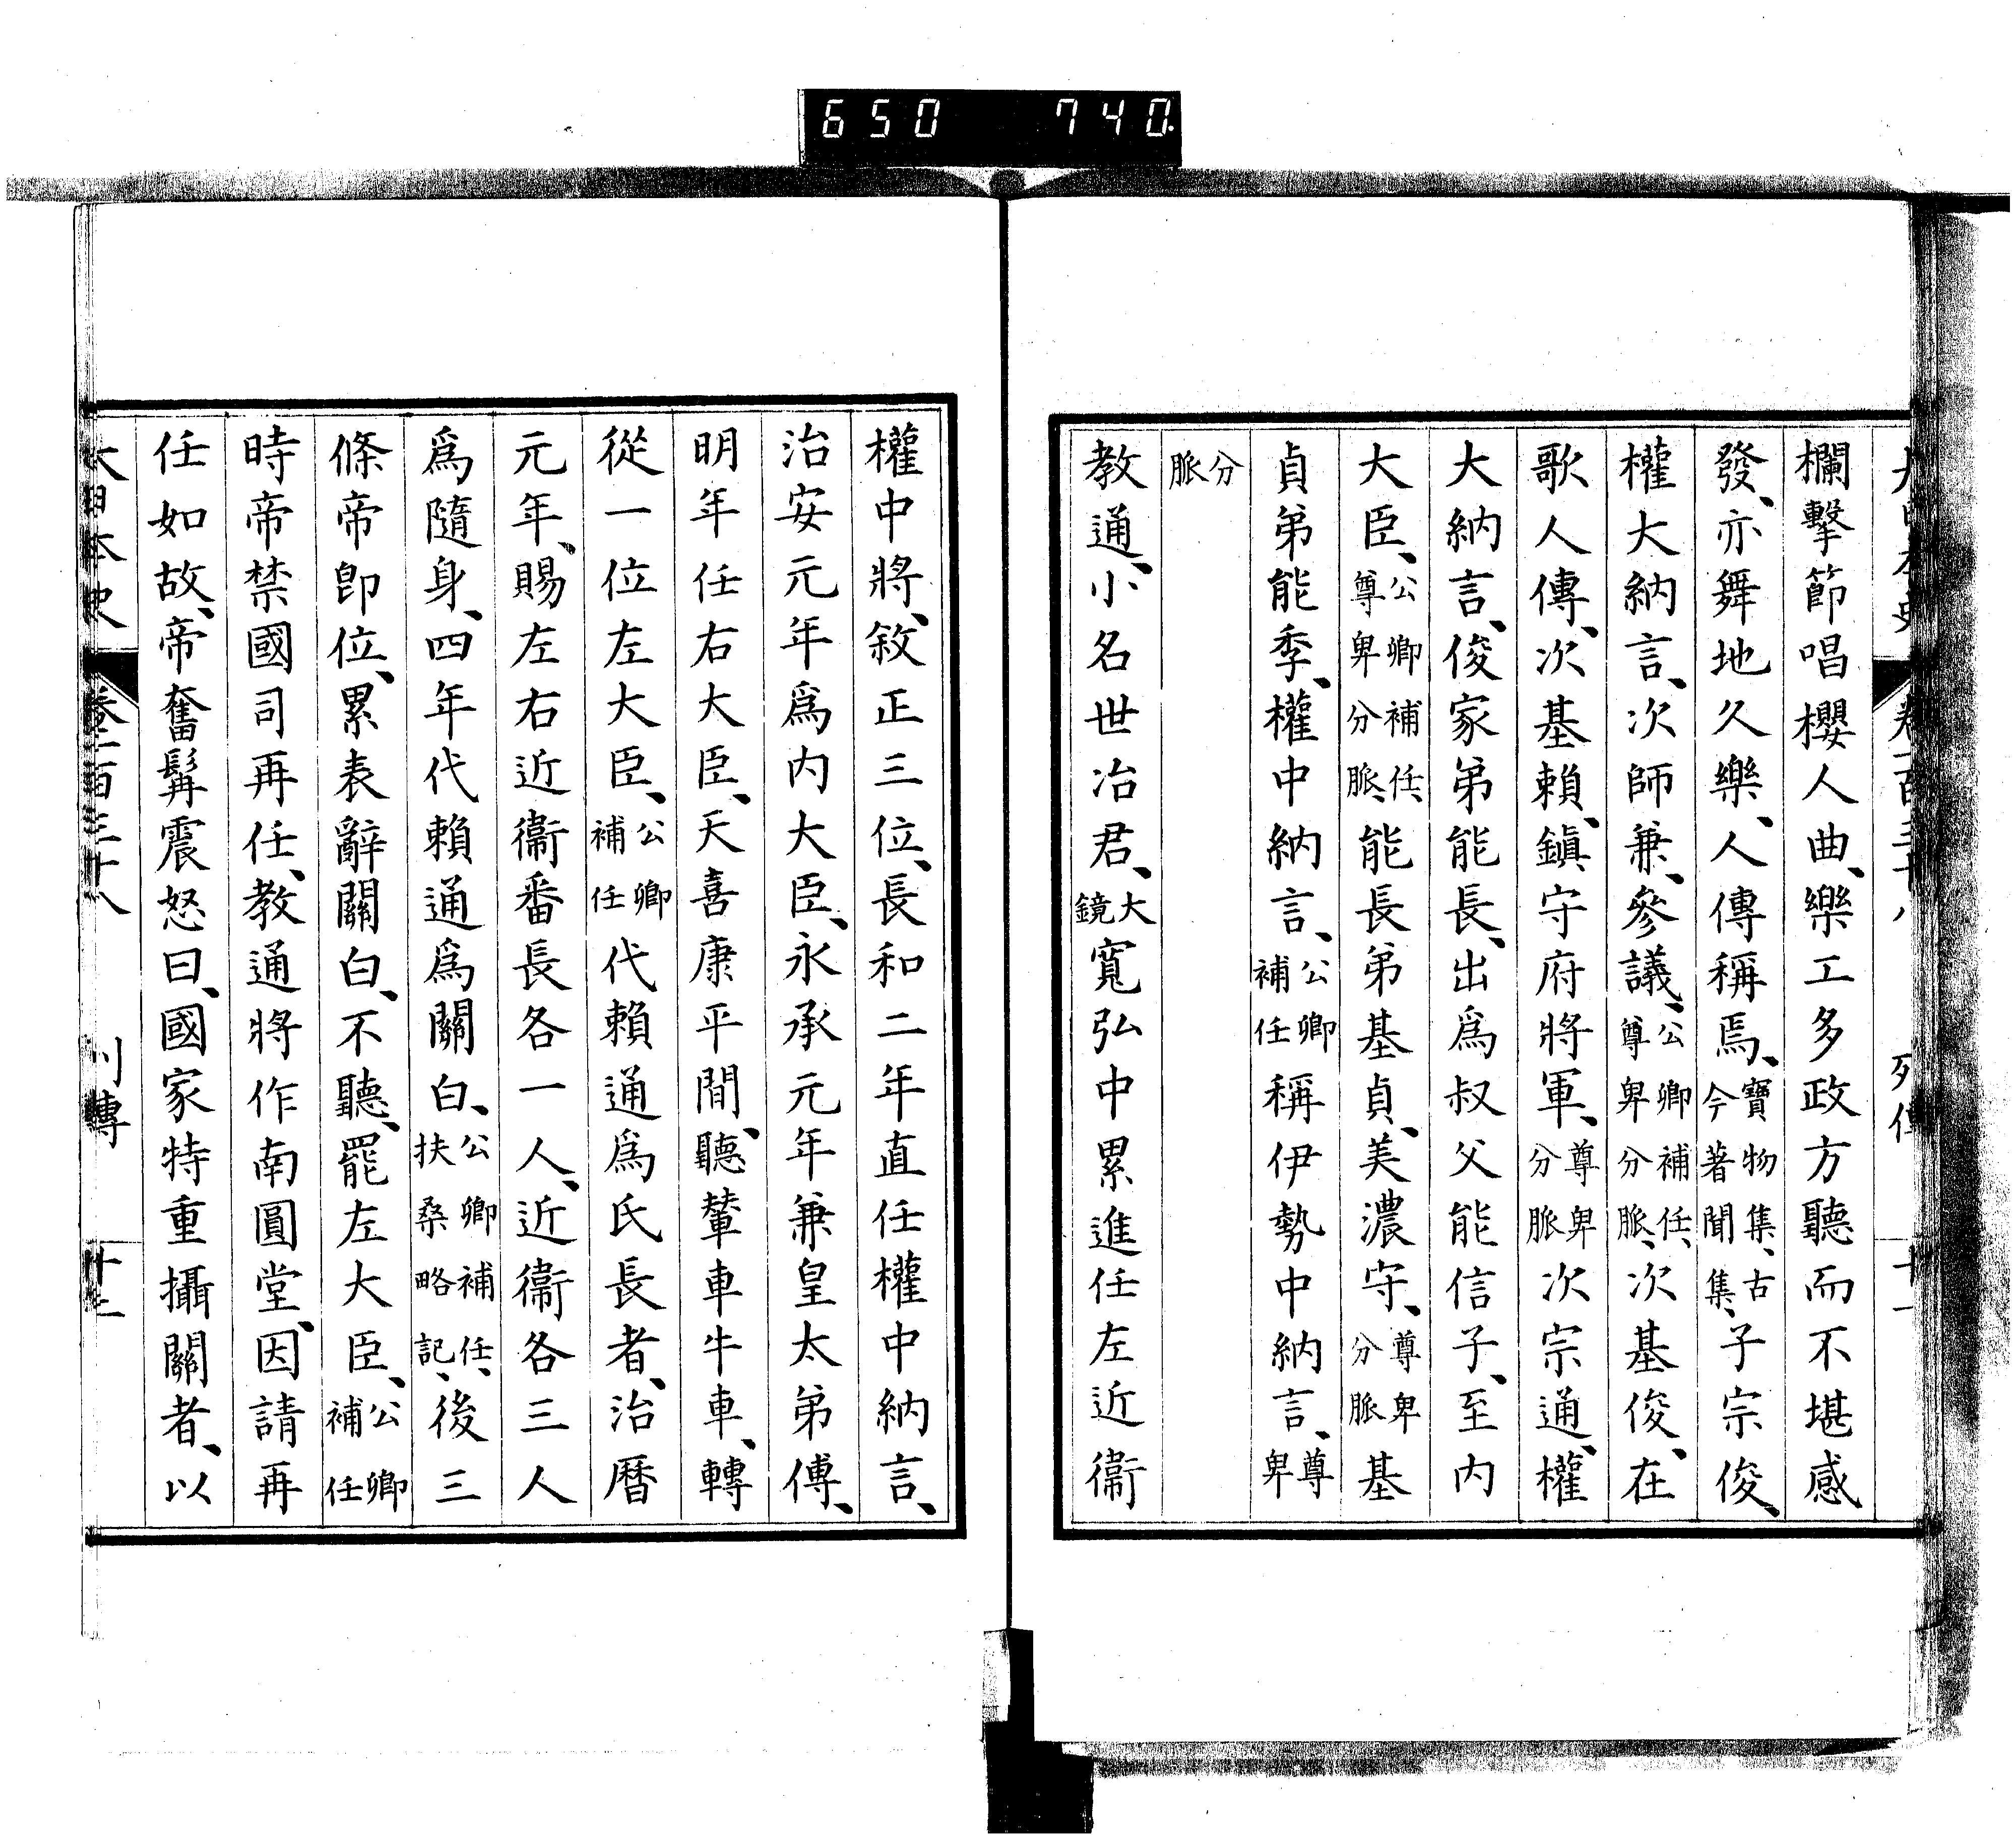 650 740
大日本史 卷一百三十八 列傳 十一
欄擊節唱櫻人曲、樂工多政方聽而不堪感
發、亦舞地久樂、人傳稱焉、寶物集、古今著聞集、子宗俊、
權大納言、次師兼、參議、公卿補任、尊卑分脈、次基俊、在
歌人傳、次基賴、鎭守府將軍、尊卑分脈次宗通、權
大納言、俊家弟能長、出爲叔父能信子、至内
大臣、公卿補任、尊卑分脈、能長弟基貞、美濃守、尊卑分脈基
貞弟能季、權中納言、公卿補任稱伊勢中納言、尊卑
分脈
教通、小名世冶君、大鏡寬弘中累進任左近衞
權中將、敘正三位、長和二年直任權中納言、
治安元年爲内大臣、永承元年兼皇太弟傅、
明年任右大臣、天喜康平間、聽輦車牛車、轉
從一位左大臣、公卿補任代賴通爲氏長者、治曆
元年、賜左右近衞番長各一人、近衞各三人
爲隨身、四年代賴通爲關白、公卿補任、扶桑略記、後三
條帝卽位、累表辭關白、不聽、罷左大臣、公卿補任
時帝禁國司再任、教通將作南圓堂、因請再
任如故、帝奮髯震怒曰、國家特重攝關者、以
大日本史 卷一百三十八 列傳 十二